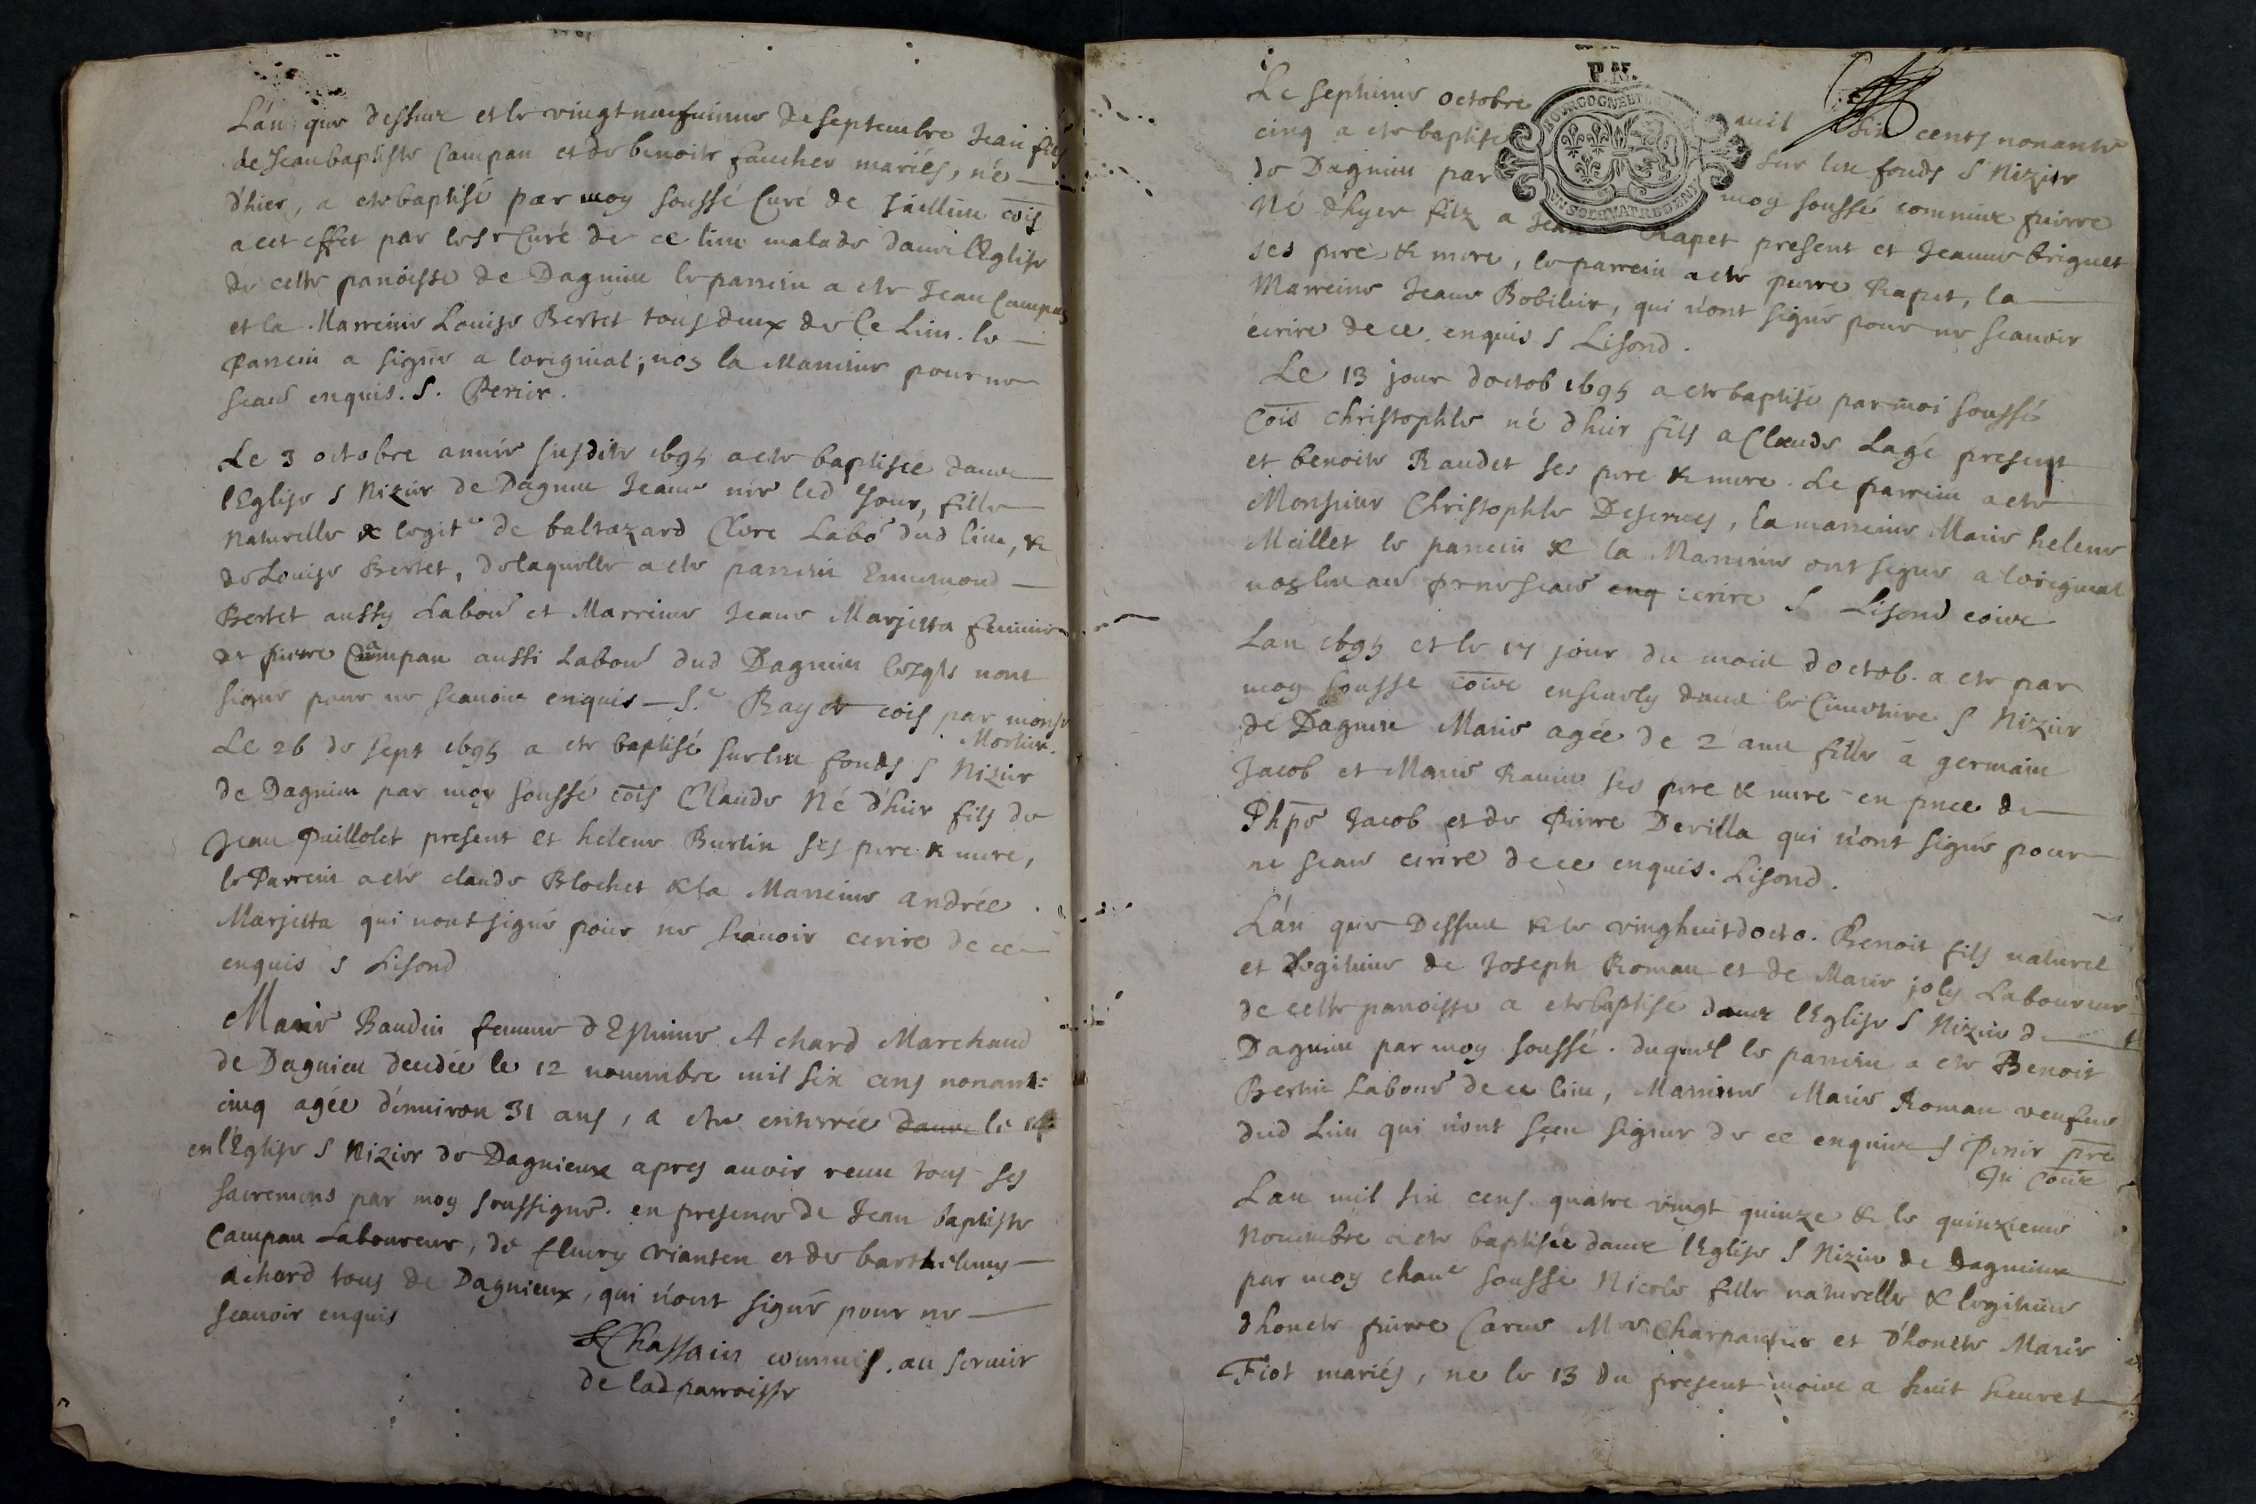 L'an que dessus et le vingt neufuieme de septembre Jean fils
de Jean baptiste Campan et de benoite faucher mariés, né
d'hier, a ete baptisé par moy soussé Curé de cois
a cet effet par le Sr Curé de ce lieu malade dans l'Eglise
de cette parroisse de Dagnieu le parrein a ete Jean Campan
et la Marreine Louise Bertet tous deux de Ce Lieu. le
Parrein a signé a l'original; nos la Marreine pour ne
scavoir enquis. S. Perier.
Le 3 octobre année susdite 1695 a ete baptisée dans
l'Eglise S Nizier de Dagnieu Jeane née led Jour, fille
Naturelle & legite de baltazard Clere Labo dud lieu, &
de Louise Bertet, de laquelle a ete parrein Ennemond
Bertet aussy Labour et Marreine Jeane Marjetta femme
de pierre Campan aussi Labour dud Dagnieu lesqls nont
signé pour ne scavoir enquis — S. Rayet cois par monsr
Mortier.
Le 26 de sept 1695 a ete baptisé sur les fonds S Nizier
de Dagnieu par moy soussé cois Claude Né d'hier fils de
Jean Puillolet present et helene Burlin ses pere & mere,
le Parrein a eté claude Blochet & la Marreine andrée
Marjetta qui nont signé pour ne scauoir ecrire de ce
enquis S Lisond
Marie Baudin femme d'Estiene Achard Marchand
de Dagnieu decedée le 12 nouembre mil six cens nonante
cinq agée d'enuiron 31 ans, a ete enterrée dans le 14
en l'Eglise S Nizier de Dagnieux apres auoir receu tous ses
sacremens par moy soussigné. en presence de Jean baptiste
Campan Laboureur, de fleury vianten et de barthelemy
achard tous de Dagnieux, qui n'ont signé pour ne
scauoir enquis
Chassain commis. au seruir
de lad parroisse
Le septieme octobre mil six cents nonante
cinq a ete baptisé sur les fonds S Nizier
de Dagnieu par moy soussé commis pierre
Né d'hyer filz a Jean Rapet present et Jeanne briguet
ses pere & mere, le parrein a ete pierre Rapet, la
Marreine Jeane Bobilier, qui n'ont signé pour ne scauoir
écrire de ce enquis S Lisond.
Le 13 jour d'octob 1695 a ete baptisé par moi soussé
Cois Christophle né d'hier fils a Claude Lagé present
et benoite Raudet ses pere & mere. Le parrein a ete
Monsieur Christophle Desernes, la marreine Marie helene
Meillet le parrein & la Marreine ont signé a l'original
nos ecrire S Lisond coire
Lan 1695 et le 17 jour du mois d'octob. a ete par
moy sousse coire enseuely dans le Cimetiere S Nizier
de Dagnieu Marie agée de 2 ans fille a germain
Jacob et Marie Rauier ses pere & mere en pnce de
Phpe Jacob et de Pierre Derilla qui n'ont signé pour
ne scavoir ecrire de ce enquis. Lisond.
L'an que Dessus & le vinghuit d'octo. Benoit fils naturel
et legitime de Joseph Roman et de Marie joly Laboureur
de cette parroisse a ete baptise dans l'Eglise S Nizier de
Dagnieu par moy soussé. duquel le parrein a ete Benoit
Bernie Labour de ce lieu, Marreine Marie Roman veufue
dud Lieu qui n'ont sceu signer de ce enquis S Perier pre
Lan mil six cens quatre vingt quinze & le quinzieme
Nouembre a ete baptisée dans l'Eglise S Nizier de Dagnieux
par moy chane soussé Nicole fille naturelle & legitime
d'honete pierre Carue Mre Charpantier et d'honete Marie
Fiot mariés, ne le 13 du present mois a huit heures